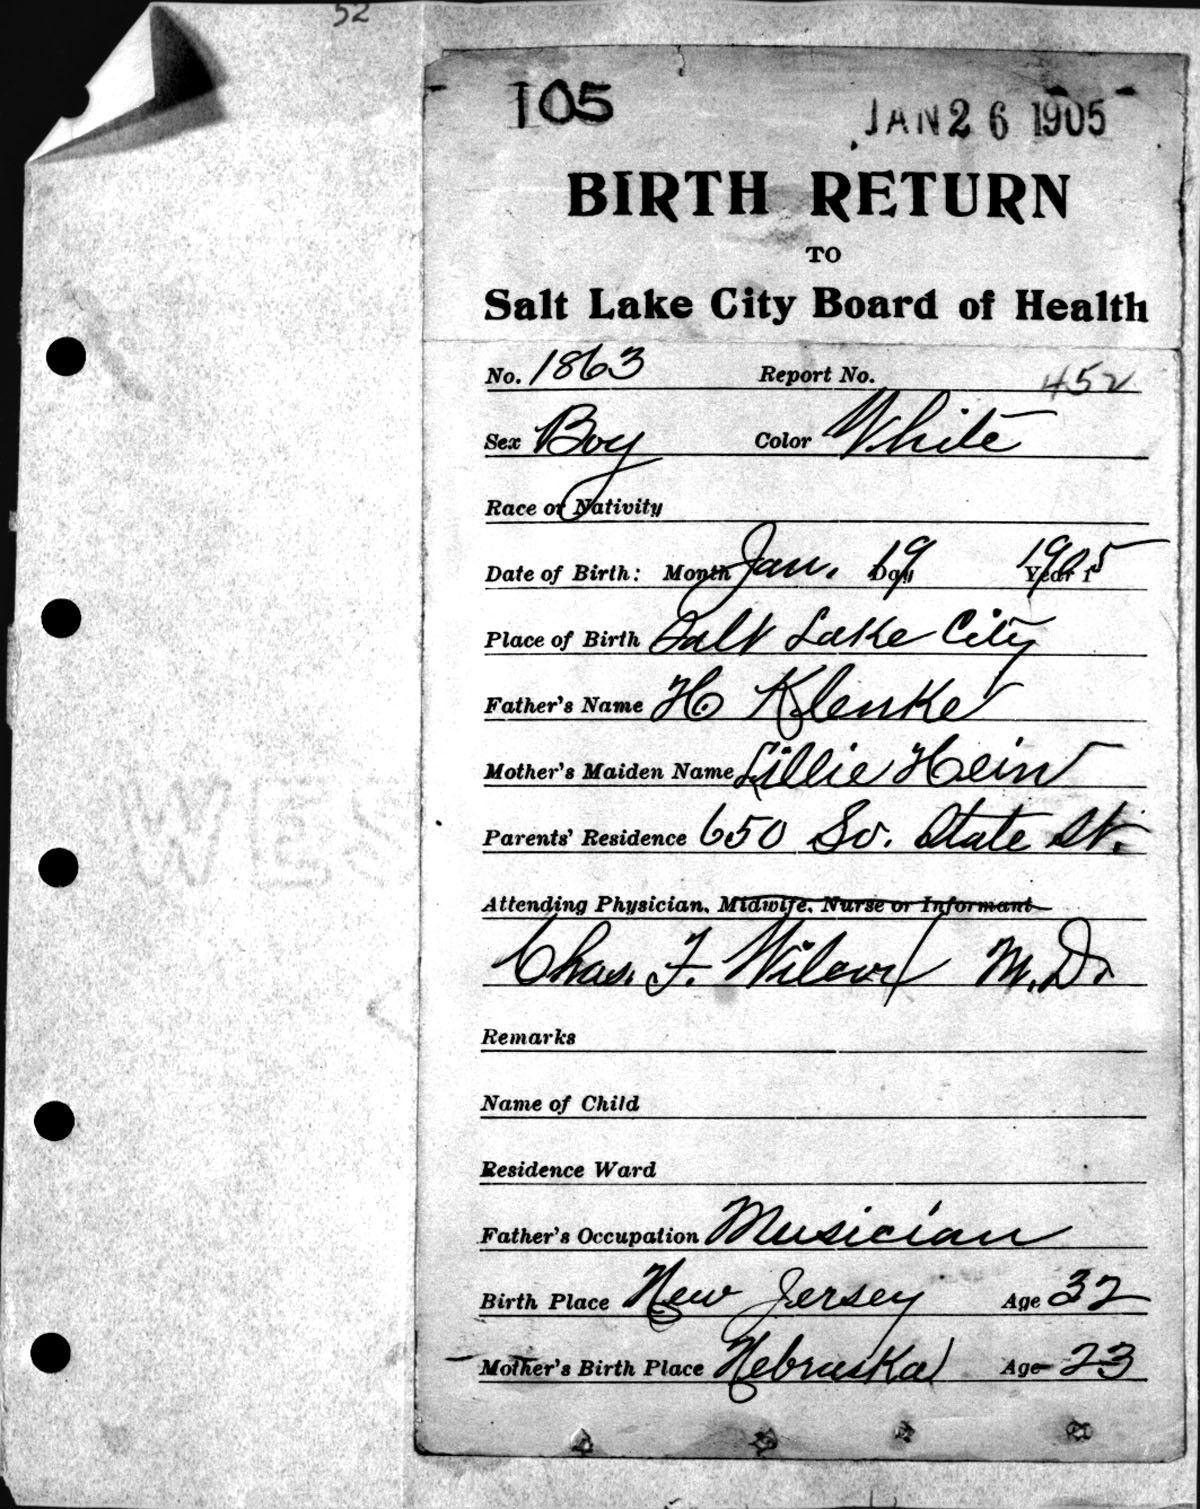 52
105 JAN 26 1905
BIRTH RETURN
TO
Salt Lake City Board of Health
No. 1863 Report No. 452
Sex Boy Color White
Race or Nativity
Date of Birth: Month Jan. Day 19 Year 1905
Place of Birth Salt Lake City
Father's Name H Klenke
Mother's Maiden Name Lillie Hein
Parents' Residence 650 So. State St.
Attending Physician, Midwife, Nurse or Informant
Chas. F. Wilcox M.D.
Remarks
Name of Child
Residence Ward
Father's Occupation Musician
Birth Place New Jersey Age 32
Mother's Birth Place Nebraska Age 23